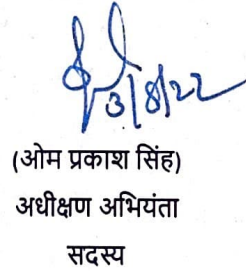 3/8/22
(ओम प्रकाश सिंह)
अधीक्षण अभियंता
सदस्य